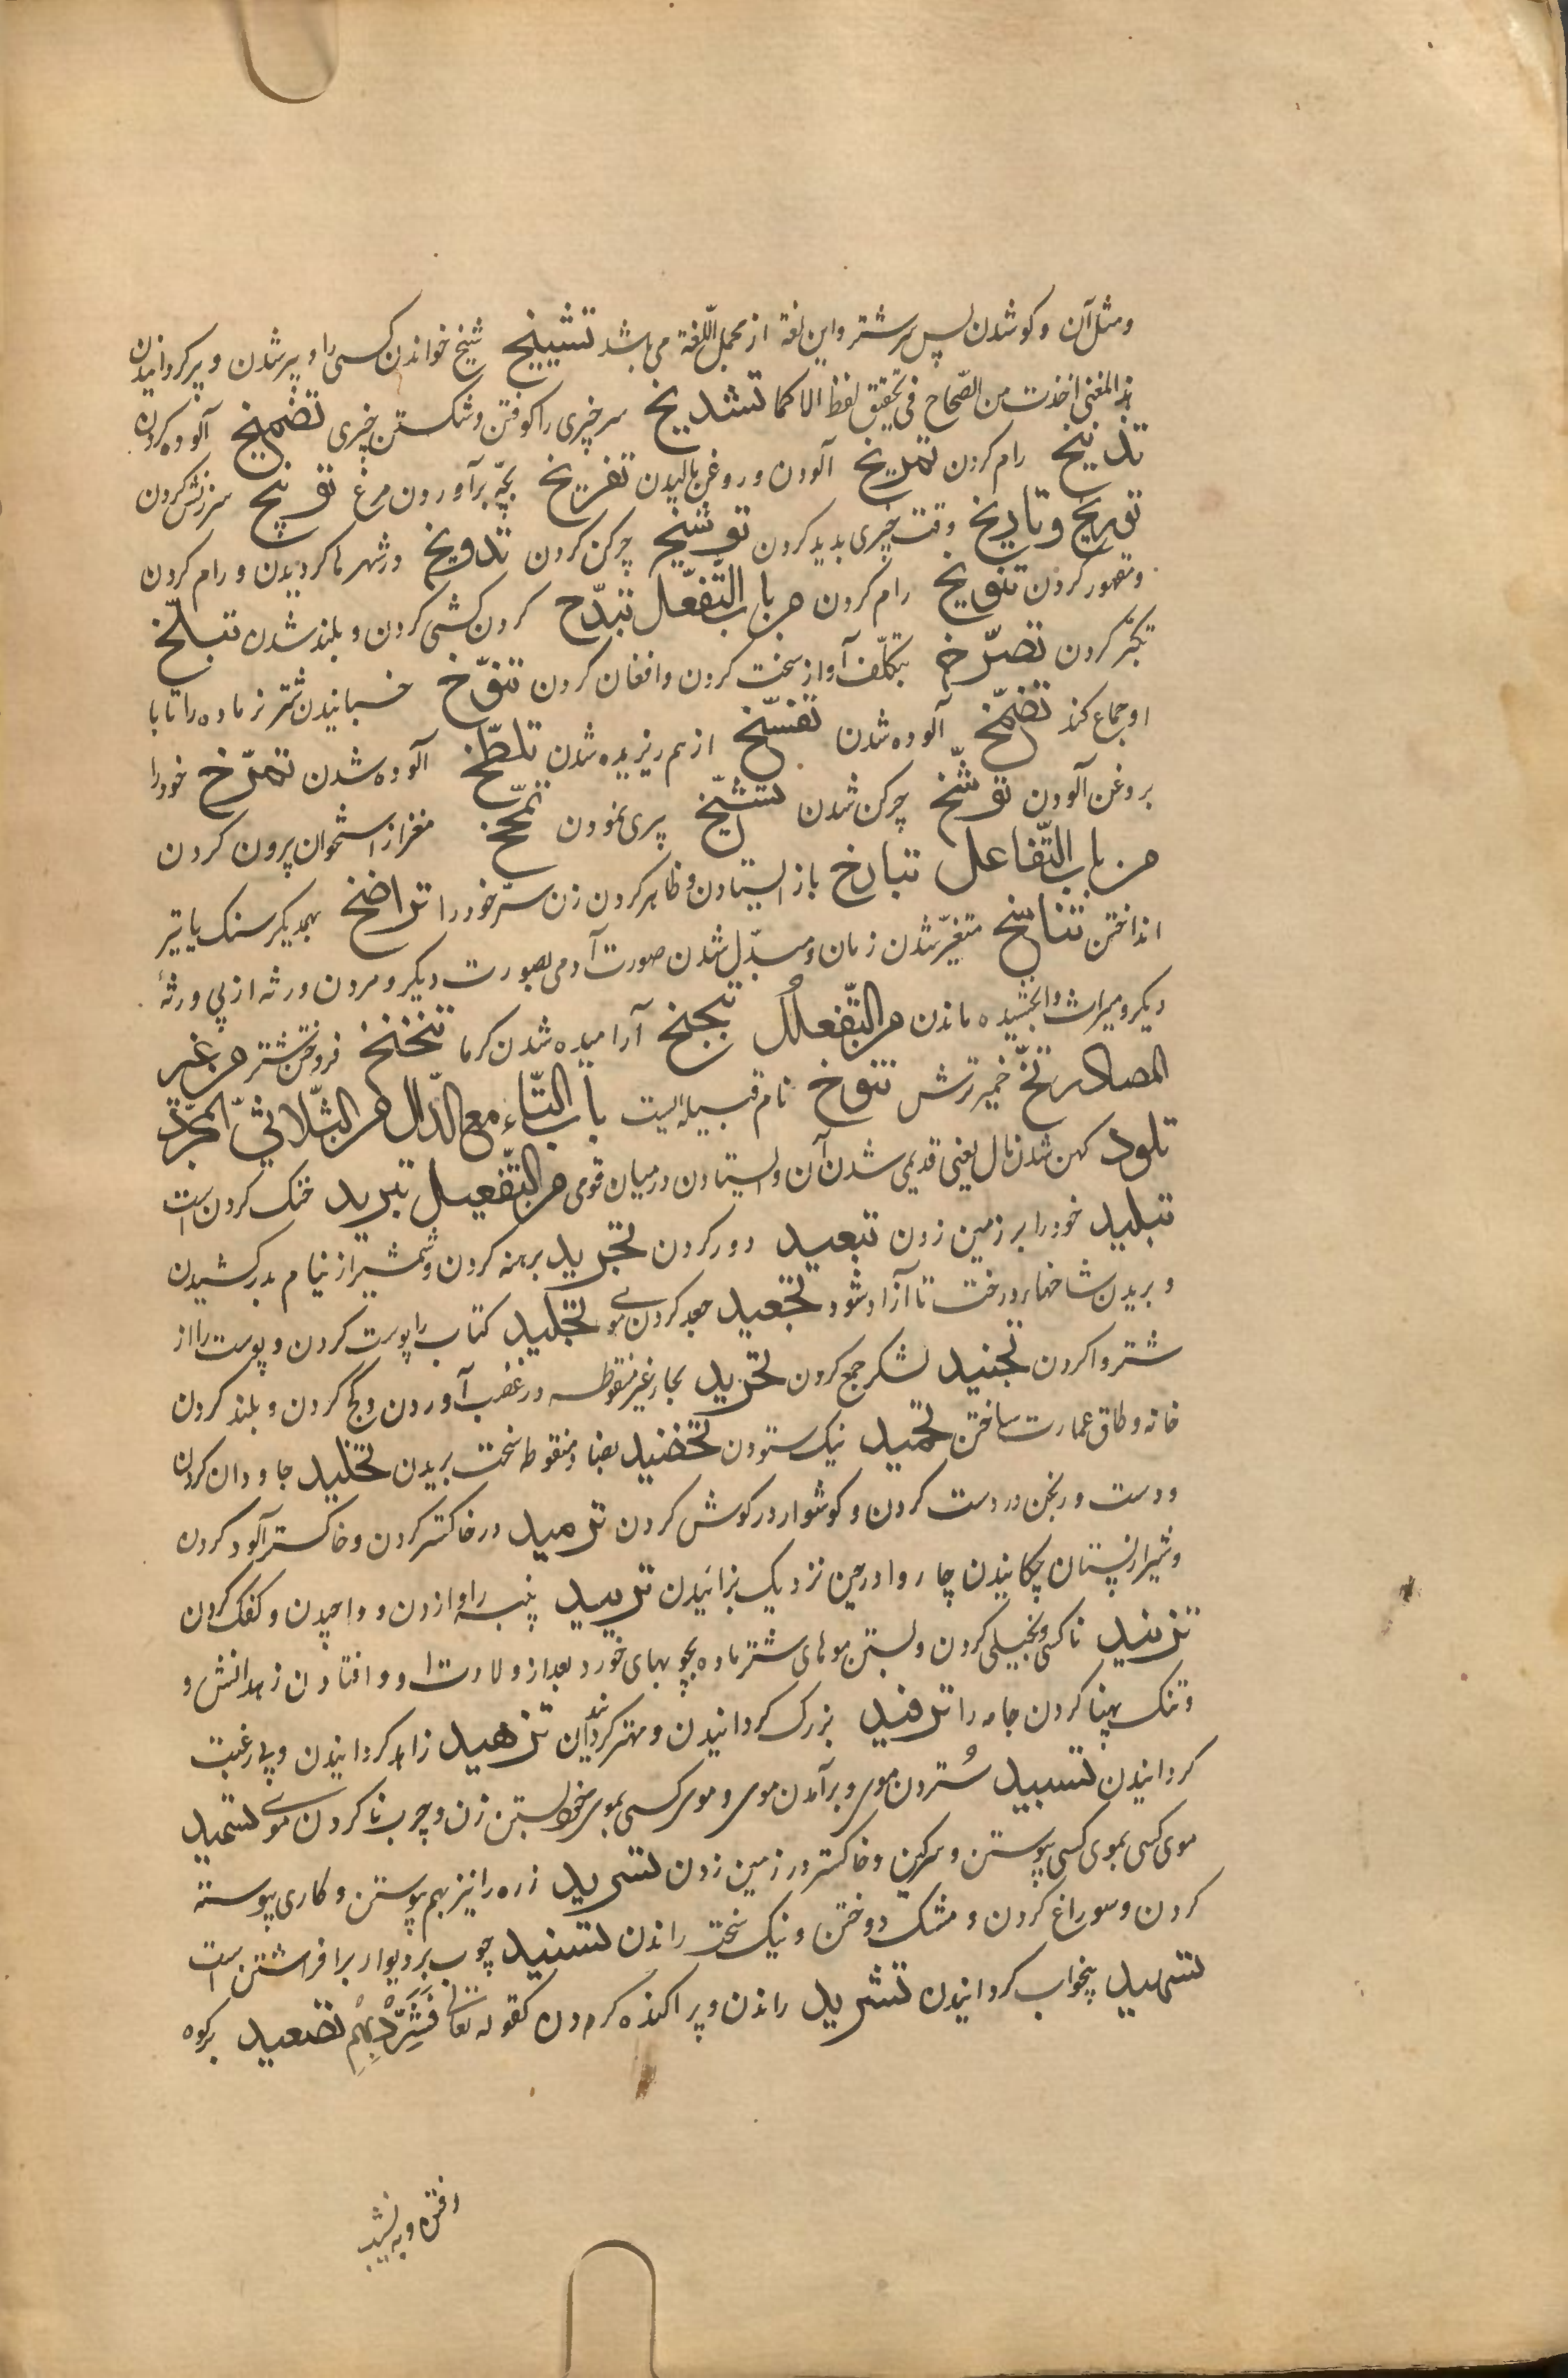 ومثل آن و کو شدن پس سر شتر واین لغة از مجمل اللّغة می باشد تشییخ شیخ خواندن کسی را و پیر شدن و پیر کردانیدن
هذا المغنی اخذت من الصّحاح فی تحقیق لفظ الاکما تشدیخ سر چیزی را کوفتن و شکستن چیزی تضمیخ آلوده کردن
تذییخ رام کردن تمریخ آلودن و روغن بالیدن تفریخ بچّه برآوردن مرغ توبیخ سرزنش کردن
توریخ وتاریخ وقت چیزی بدید کردن توشیخ چرکن کردن تدویخ در شهرها کردیدن و رام کردن
ومقهور کردن تنویخ رام کردن من باب التّفعّل تبدّخ کردن کشی کردن و بلند شدن تبلّخ
تکبّر کردن تصرّخ بتکلّف آواز سخت کردن وافغان کردن تنوّخ خسبانیدن شتر نر ماده را تا با
او جماع کند تضمّخ آلوده شدن تفسّخ از هم ریزیده شدن تلطّخ آلوده شدن تمرّخ خود را
بروغن آلودن توشّخ چرکن شدن تشیّخ پیری نمودن تمخّخ مغز از استخوان بیرون کردن
من باب التّفاعل تبازخ باز ایستادن و ظاهر کردن زن سترّ خود را تراضخ بهمدیکر سنک یا تیر
انداختن تناسخ متغیّر شدن زمان و مبدّل شدن صورت آدمی بصورت دیکر و مردن ورثه از پی ورثهٔ
دیکر و میراث وابخشیده ماندن من التّفعلُل تبخبخ آرامیده شدن کرما تنخنخ فروختن شتر من غیر
المصادر تخّ خمیر ترش تنوخ نام قبیله ایست باب التّاء مع الدّال من الثّلاثیّ المجرّد
تلود کهن شدن مال یعنی قدیمی شدن آن و ایستادن در میان قومی من التّفعیل تبرید خنک کردن است
تبلید خود را بر زمین زدن تبعید دور کردن تجرید برهنه کردن وشمشیر از نیام بدر کشیدن
و بریدن شاخها بر درخت تا آزاد شود تجعید جعد کردن موی تجلید کتاب را پوست کردن و پوست را از
شتر وا کردن تجنید لشکر جمع کردن تحرید بحاء غیر منقوطه در غضب آوردن و کج کردن و بلند کردن
خانه و طاق عمارت ساختن تحمید نیک ستودن تخضید بضاد منقوطه سخت بریدن تخلید جاودان کردن
ودست ورنجن در دست کردن و کوشوار در کوش کردن ترمید در خاکستر کردن وخاکستر آلود کردن
وشیر از پستان چکانیدن چاروا در حین نزدیک بزائیدن تزبید پنبه را وازدن و واچیدن وکفک کردن
تزنید ناکسی و بخیلی کردن و بستن موهای شتر ماده بچوبهای خورد بعد از ولادت او و افتادن زهدانش و
وتنک پهنا کردن جامه را ترفید بزرک کردانیدن و مهتر کردانیدن تزهید زاهد کردانیدن و بی رغبت
کردانیدن تسبید سُتردن موی و برآمدن موی و موی کسی بموی خود بستن زن و چرب نا کردن موی تسمید
موی کسی بموی کسی پیوستن و سرکین وخاکستر در زمین زدن تسرید زره را نیز بهم پیوستن و کاری پیوسته
کردن و سوراغ کردن و مشک دوختن و نیک سخت راندن تسنید چوب بر دیوار برافراشتن است
تسهید بیخواب کردانیدن تشرید راندن و پراکنده کردن کقوله تعالی فَشَرِّدْبِهِمْ تصعید برکوه
رفتن و به نشیب